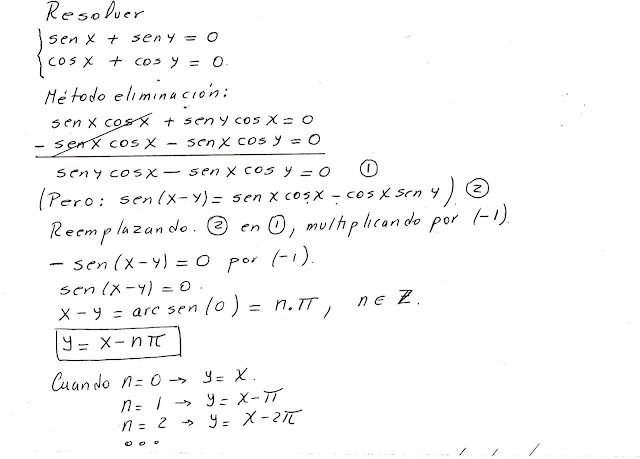 Resolver
sen x + sen y = 0
cos x + cos y = 0.
Método eliminación:
sen x cos x + sen y cos x = 0
- sen x cos x - sen x cos y = 0
sen y cos x - sen x cos y = 0 ①
(Pero: sen (x-y) = sen x cos x - cos x sen y) ②
Reemplazando. ② en ①, multiplicando por (-1).
- sen (x-y) = 0 por (-1).
sen (x-y) = 0.
x - y = arc sen (0) = n.π, n ∈ Z.
y = x - nπ
Cuando n = 0 → y = x.
n = 1 → y = x - π
n = 2 → y = x - 2π
...